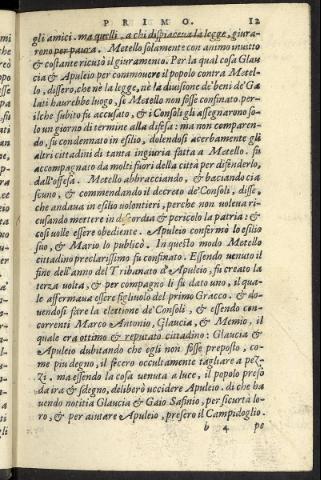 PRIMO. 12
gli amici. ma quelli, a chi dispiaceua la legge, giura-
rono per paura. Metello solamente con animo inuitto
& costante ricusò il giuramento. Per la qual cosa Glau
cia & Apuleio per commouere il popolo contra Metel-
lo, dissero, che nè la legge, nè la diuisione de' beni de' Ga
lati haurebbe luogo, se Metello non fosse confinato. per-
ilche subito fu accusato, & i Consoli gli assegnarono so-
lo un giorno di termine alla difesa: ma non comparen-
do, fu condennato in esilio, dolendosi acerbamente gli
altri cittadini di tanta ingiuria fatta a Metello. fu
accompagnato da molti fuori della città per difenderlo,
dall'offesa. Metello abbracciando, & baciando cia
scuno, & commendando il decreto de' Consoli, disse,
che andaua in esilio volontieri, perche non voleua ri-
cusando mettere in discordia & pericolo la patria: &
cosi volle essere obediente. Apuleio confermò lo esilio
suo, & Mario lo publicò. In questo modo Metello
cittadino preclarissimo fu confinato. Essendo venuto il
fine dell'anno del Tribunato d'Apuleio, fu creato la
terza volta, & per compagno li fu dato uno, il qua-
le affermaua essere figliuolo del primo Gracco. & do-
uendosi fare la elettione de' Consoli, & essendo con-
correnti Marco Antonio, Glaucia, & Memio, il
quale era ottimo & reputato cittadino: Glaucia &
Apuleio dubitando che egli non fosse preposto, co-
me piu degno, il fecero occultamente tagliare a pez-
zi. ma essendo la cosa venuta a luce, il popolo preso
da ira & sdegno, deliberò vccidere Apuleio. di che ha
uendo notitia Glaucia & Gaio Safinio, per sicurtà lo-
ro, & per aiutare Apuleio, presero il Campidoglio.
b 4 po